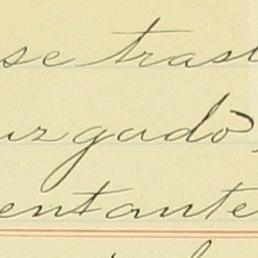 se trasl
uzgado,
entante